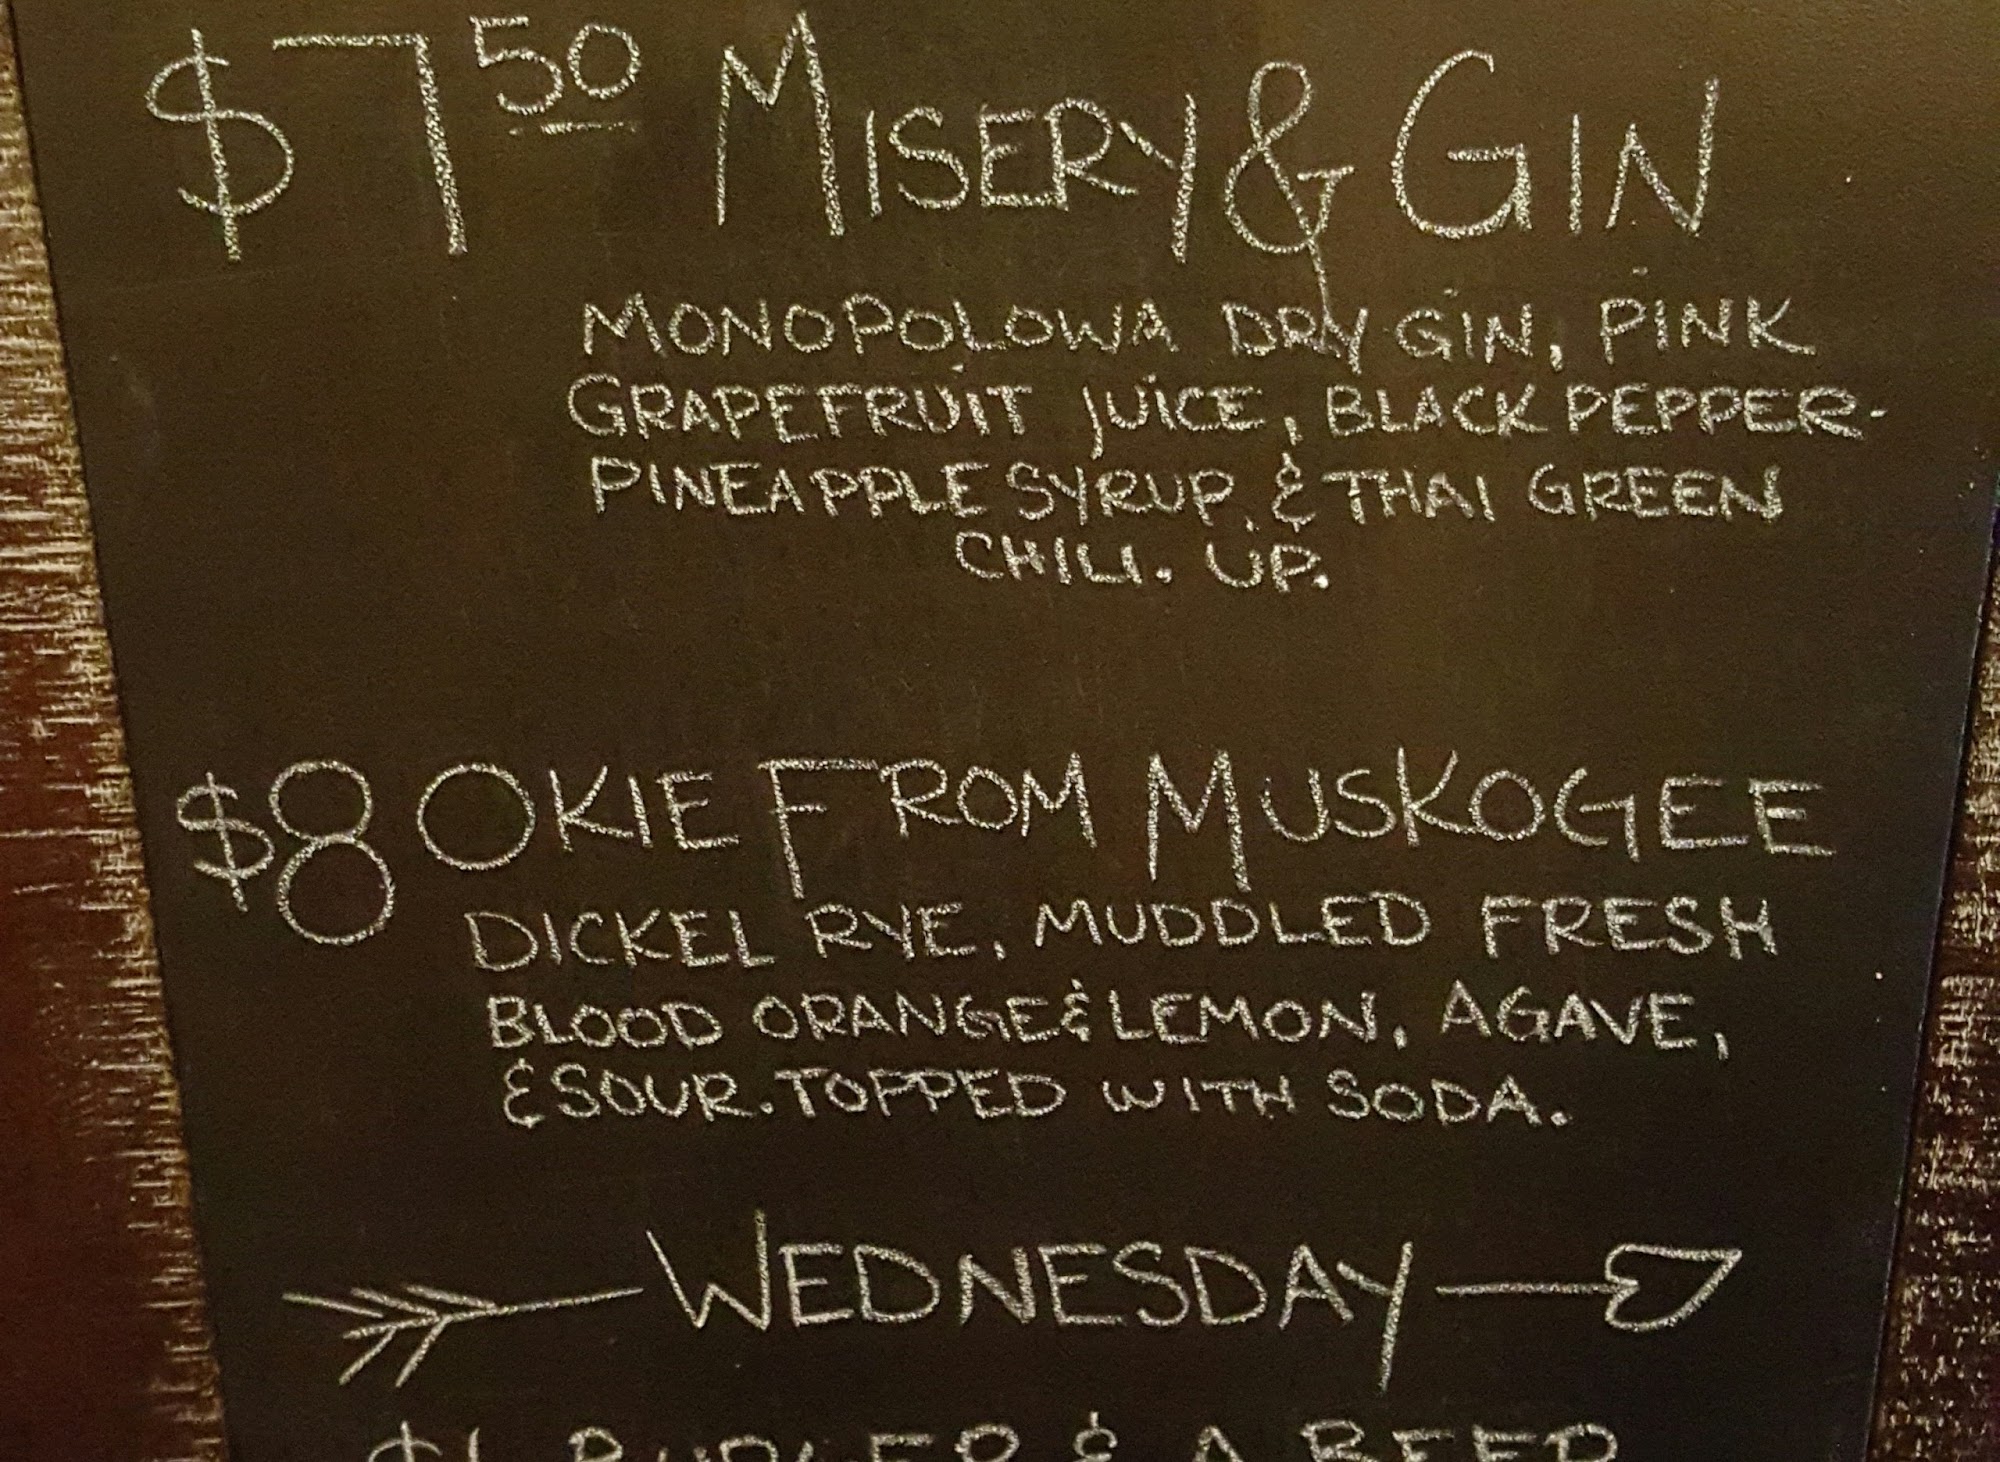 $7.50 MISERY & GIN
MONOPOLOWA DRY GIN, PINK
GRAPEFRUIT JUICE, BLACK PEPPER-
PINEAPPLE SYRUP, & THAI GREEN
CHILI. UP.
$8 OKIE FROM MUSKOGEE
DICKEL RYE, MUDDLED FRESH
BLOOD ORANGE & LEMON, AGAVE,
& SOUR. TOPPED WITH SODA.
WEDNESDAY
BURGER & A BEER